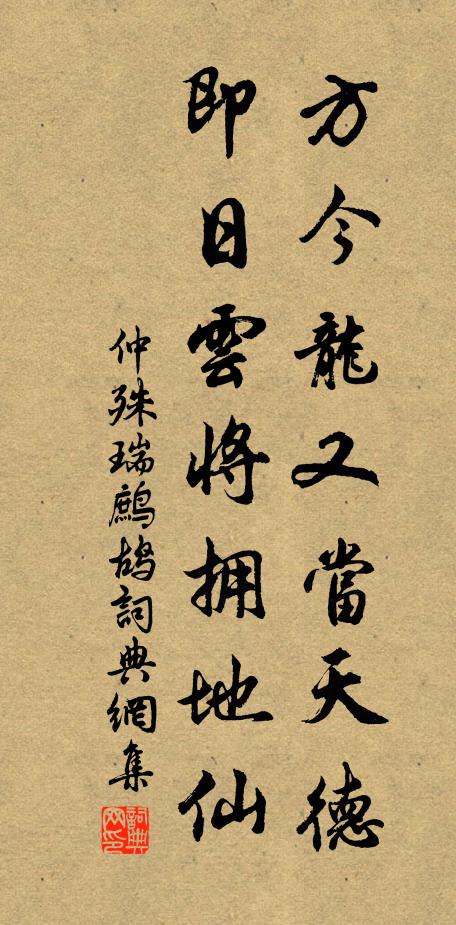 方今龍又當天德
即日雲將拥地仙
仲殊瑞鷓鴣詞典網集
詞典网印